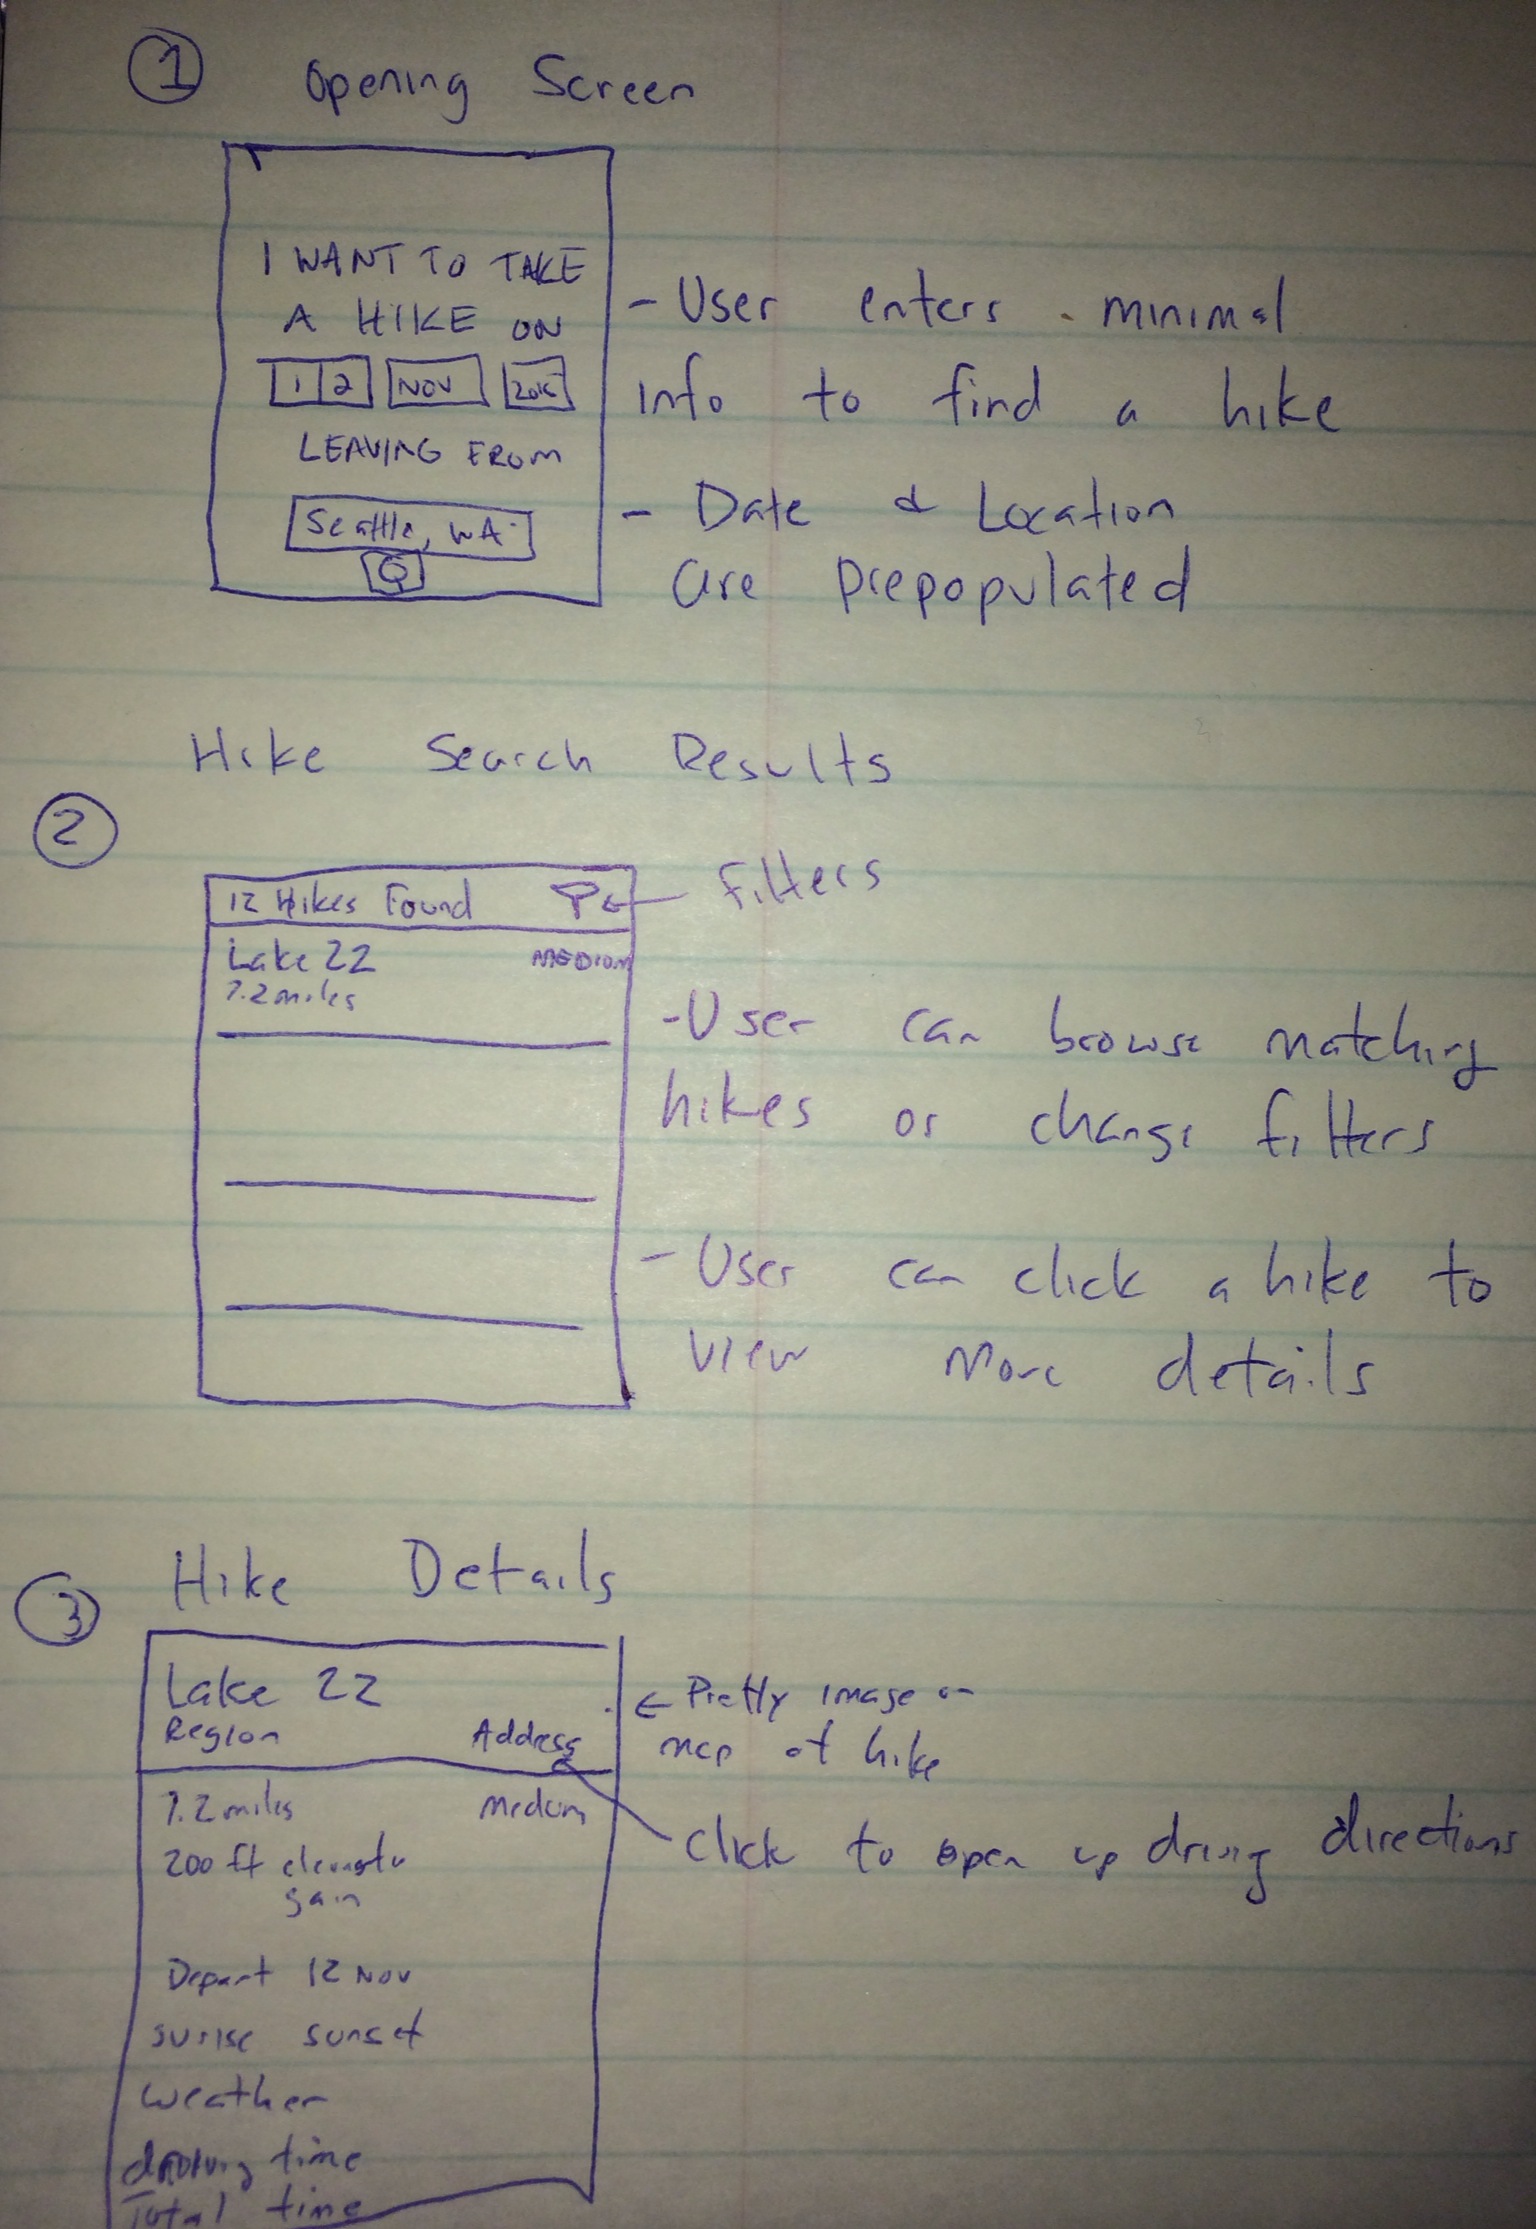 1 Opening Screen
I WANT TO TAKE
A HIKE ON
12 NOV
LEAVING FROM
Seattle, WA
- User enters minimal
info to find a hike
- Date & Location
are prepopulated
Hike Search Results
2
12 Hikes Found
Filters
Lake 22 MEDIUM
7.2 miles
- User can browse matching
hikes or change filters
- User can click a hike to
view more details
Hike Details
3
Lake 22
Region Address
← Pretty image or
map of hike
7.2 miles Medium
Click to open up driving directions
200 ft
gain
Depart 12 Nov
sunrise sunset
weather
driving time
Total time